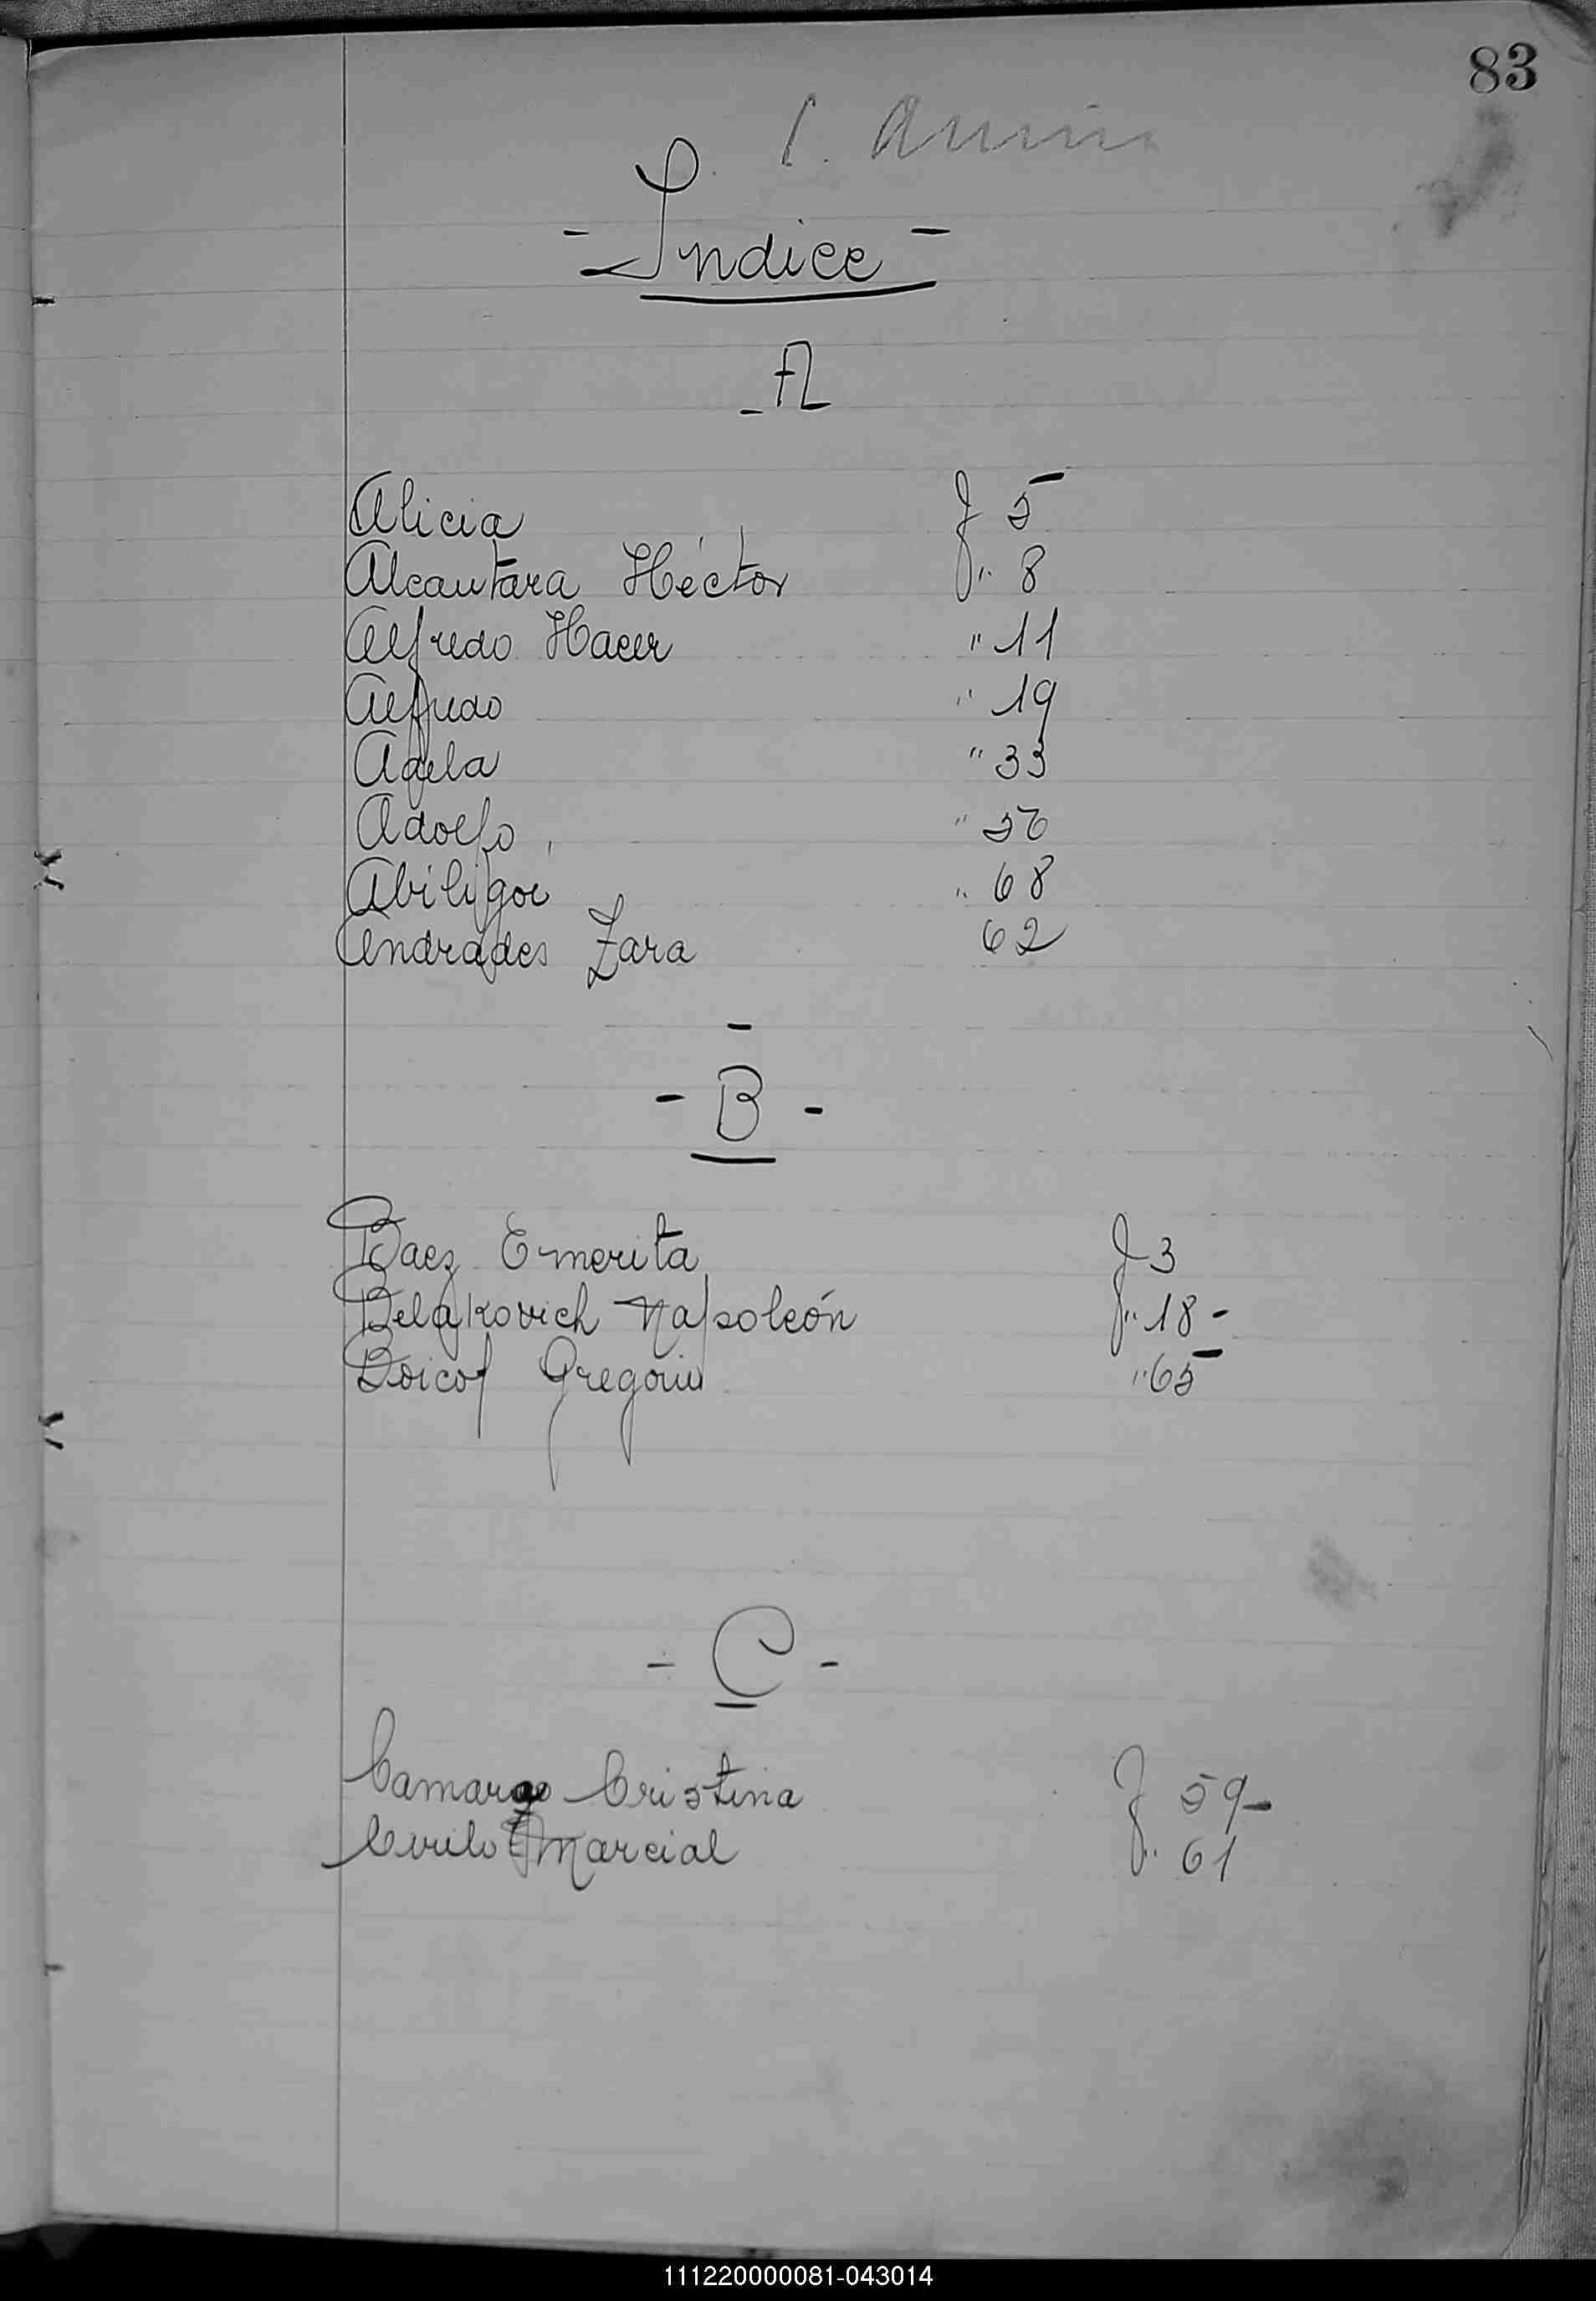 83
- Indice -
- A
Alicia f 5
Alcantara Héctor f " 8
Alfredo Hacer " 11
Alfredo " 19
Adela " 33
Adolfo " 56
" 68
Andrades Zara 62
- B -
Baez Emerita f 3
Belakovich Napoleón f " 18 -
Boicof Gregorio " 65
- C -
Camargo Cristina f 59 -
Marcial f " 61
111220000081-043014